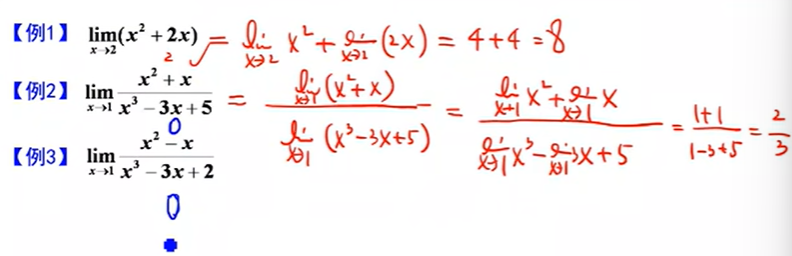 【例1】 lim_{x→2}(x² + 2x) = lim_{x→2} x² + lim_{x→2} (2x) = 4+4 = 8
2
【例2】 lim_{x→1} (x² + x)/(x³ − 3x + 5) = lim_{x→1} (x²+x) / lim_{x→1} (x³−3x+5) = (lim_{x→1} x² + lim_{x→1} x)/(lim_{x→1} x³ − lim_{x→1} 3x + 5) = (1+1)/(1−3+5) = 2/3
0
【例3】 lim_{x→1} (x² − x)/(x³ − 3x + 2)
0